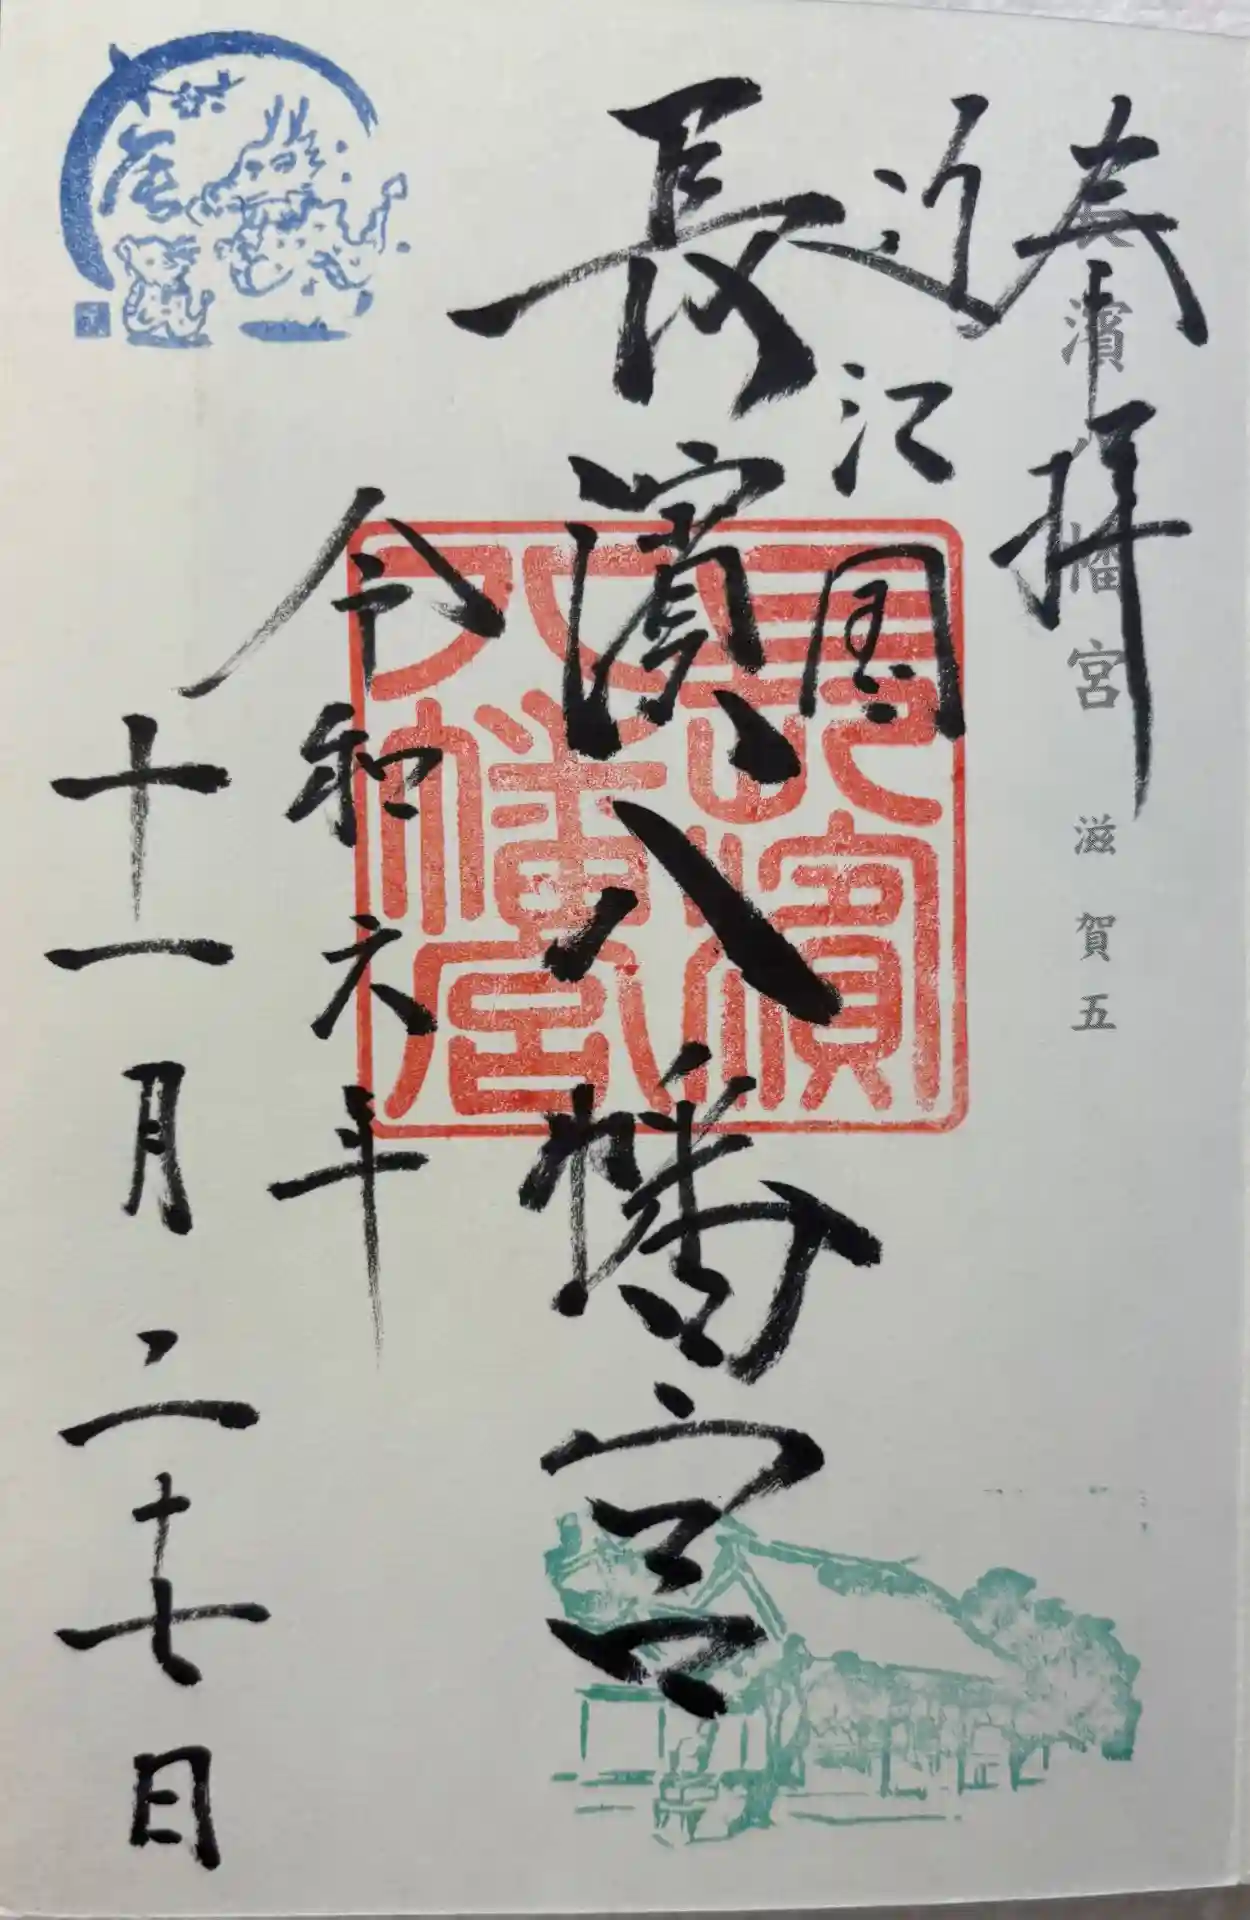 奉拝
長濱八幡宮 滋賀五
近江国
長濱八幡宮
長濱
八幡宮
令和六年
十一月二十七日
辰